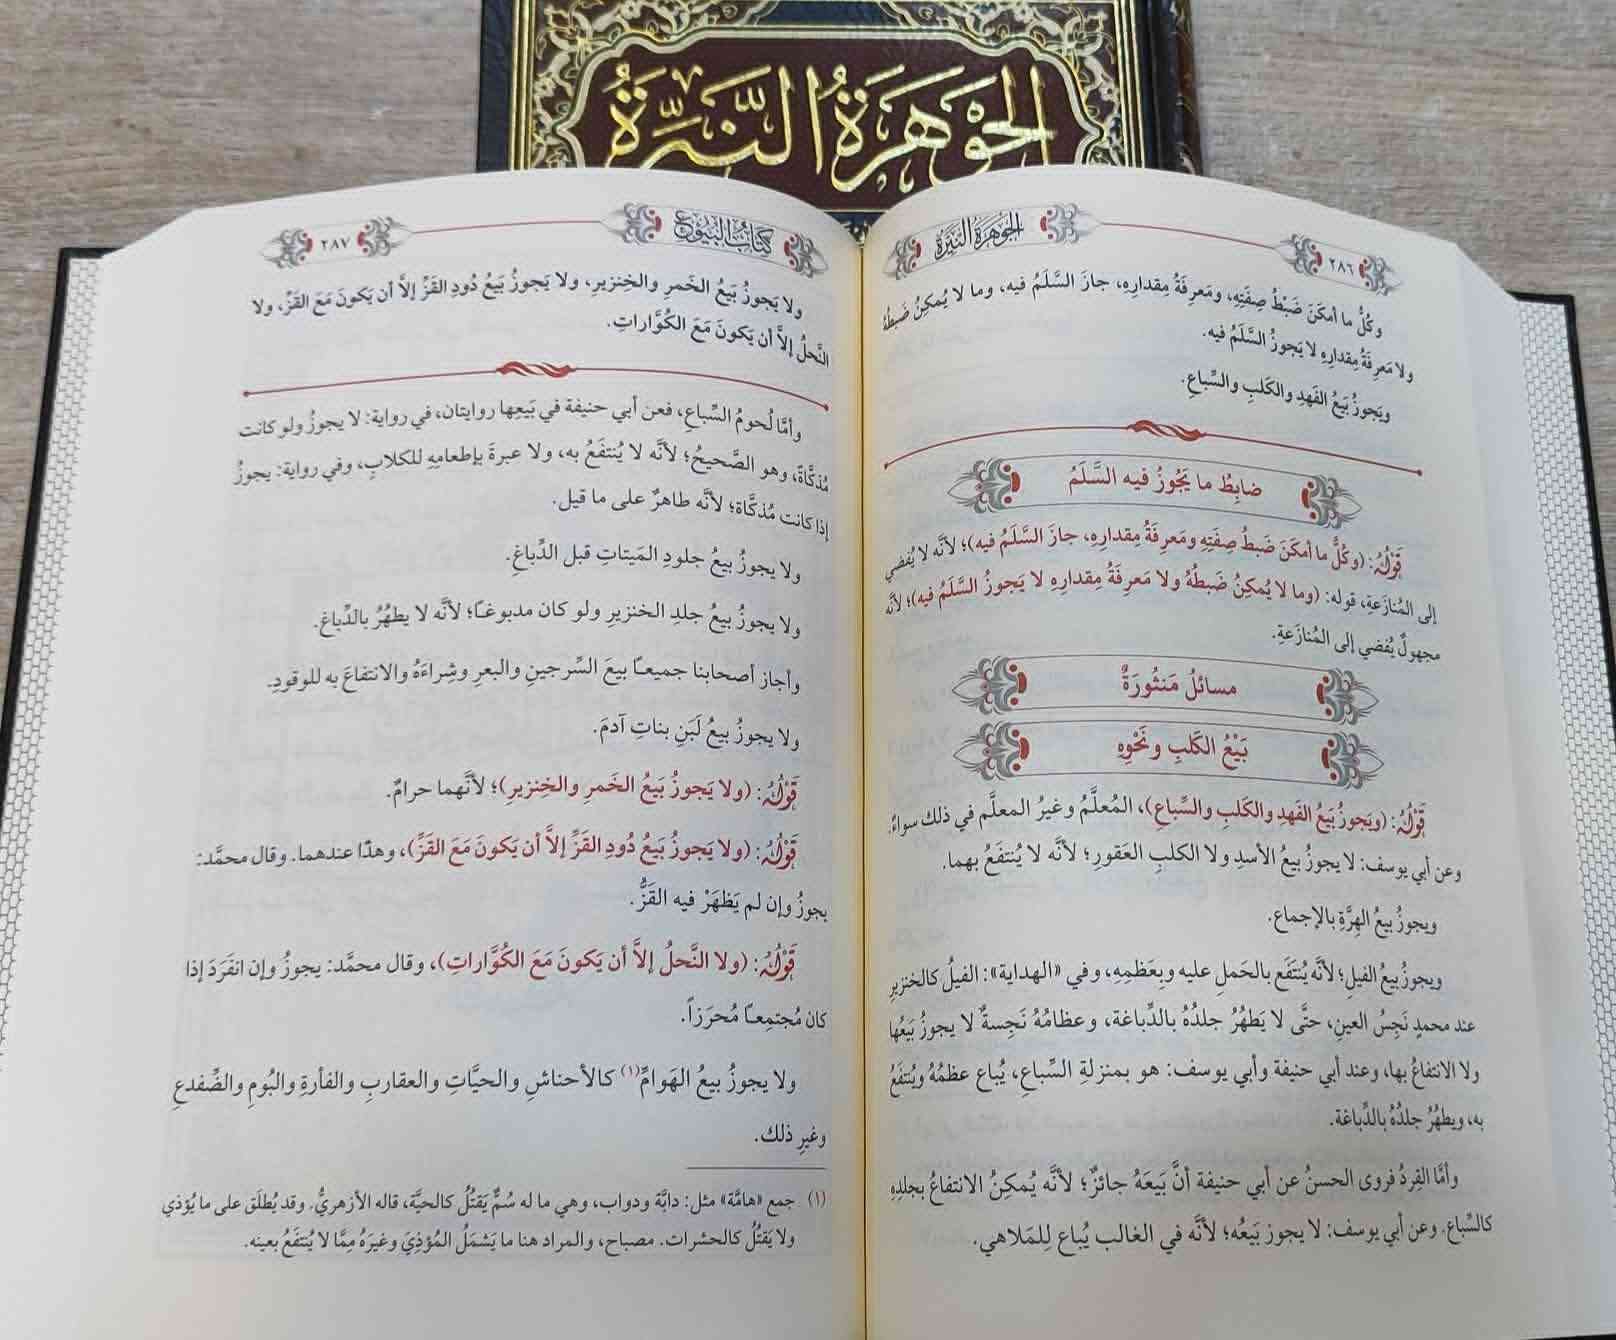 الجَوْهَرَةُ النَّيِّرَةُ
٢٨٦
الجَوْهَرَةُ النَّيِّرَةُ
وكُلُّ ما أمكَنَ ضَبْطُ صِفَتِهِ، ومَعرِفَةُ مِقدارِه، جازَ السَّلَمُ فيه، وما لا يُمكِنُ ضَبطُهُ
ولا مَعرِفَةُ مِقدارِهِ لا يَجوزُ السَّلَمُ فيه.
ويَجوزُ بَيعُ الفَهدِ والكَلبِ والسِّباعِ.
ضابِطُ ما يَجُوزُ فيه السَّلَمُ
قَوْلُهُ: (وكُلُّ ما أمكَنَ ضَبطُ صِفَتِهِ ومَعرِفَةُ مِقدارِه، جازَ السَّلَمُ فيه)؛ لأنَّه لا يُفضي
إلى المُنازَعةِ، قوله: (وما لا يُمكِنُ ضَبطُهُ ولا مَعرِفَةُ مِقدارِهِ لا يَجوزُ السَّلَمُ فيه)؛ لأنَّه
مجهولٌ يُفضي إلى المُنازَعةِ.
مسائلُ مَنثُورَةٌ
بَيْعُ الكَلبِ ونَحْوِهِ
قَوْلُهُ: (ويَجوزُ بَيعُ الفَهدِ والكَلبِ والسِّباعِ)، المُعلَّمُ وغيرُ المعلَّم في ذلك سواءٌ.
وعن أبي يوسف: لا يجوزُ بيعُ الأسدِ ولا الكلبِ العَقورِ؛ لأنَّه لا يُنتَفَعُ بهما.
ويجوزُ بيعُ الهِرَّةِ بالإجماع.
ويجوزُ بيعُ الفيلِ؛ لأنَّه يُنتَفَع بالحَملِ عليه وبعَظمِهِ، وفي «الهداية»: الفيلُ كالخنزيرِ
عند محمدٍ نَجِسُ العينِ، حتَّى لا يَطهُرُ جلدُهُ بالدِّباغة، وعظامُهُ نَجِسةٌ لا يجوزُ بَيعُها
ولا الانتفاعُ بها، وعند أبي حنيفة وأبي يوسف: هو بمنزلةِ السِّباع، يُباع عظمُهُ ويُنتَفَعُ
به، ويطهُرُ جلدُهُ بالدِّباغة.
وأمَّا القِردُ فروى الحسنُ عن أبي حنيفة أنَّ بَيعَهُ جائزٌ؛ لأنَّه يُمكِنُ الانتفاعُ بجلدِهِ
كالسِّباع. وعن أبي يوسف: لا يجوز بَيعُه؛ لأنَّه في الغالب يُباع لِلمَلاهي.
كتابُ البُيُوع
٢٨٧
ولا يَجوزُ بَيعُ الخَمرِ والخِنزيرِ، ولا يَجوزُ بَيعُ دُودِ القَزِّ إلاَّ أن يَكونَ مَعَ القَزِّ، ولا
النَّحلُ إلاَّ أن يَكونَ مَعَ الكُوَّاراتِ.
وأمَّا لُحومُ السِّباع، فعن أبي حنيفة في بَيعِها روايتان، في رواية: لا يجوزُ ولو كانت
مُذكَّاةً، وهو الصَّحيحُ؛ لأنَّه لا يُنتفَعُ به، ولا عبرةَ بإطعامِهِ للكلابِ، وفي رواية: يجوزُ
إذا كانت مُذكَّاة؛ لأنَّه طاهرٌ على ما قيل.
ولا يجوزُ بيعُ جلودِ المَيتاتِ قبل الدِّباغِ.
ولا يجوزُ بيعُ جلدِ الخنزيرِ ولو كان مدبوغاً؛ لأنَّه لا يطهُرُ بالدِّباغ.
وأجاز أصحابنا جميعاً بيعَ السِّرجينِ والبعرِ وشِراءَهُ والانتفاعَ به للوقودِ.
ولا يجوزُ بيعُ لَبَنِ بناتِ آدمَ.
قَوْلُهُ: (ولا يَجوزُ بَيعُ الخَمرِ والخِنزيرِ)؛ لأنَّهما حرامٌ.
قَوْلُهُ: (ولا يَجوزُ بَيعُ دُودِ القَزِّ إلاَّ أن يَكونَ مَعَ القَزِّ)، وهذا عندهما. وقال محمَّد:
يجوزُ وإن لم يَظهَرْ فيه القَزُّ.
قَوْلُهُ: (ولا النَّحلُ إلاَّ أن يَكونَ مَعَ الكُوَّاراتِ)، وقال محمَّد: يجوزُ وإن انفَرَدَ إذا
كان مُجتمِعاً مُحرَزاً.
ولا يجوزُ بيعُ الهَوامِّ(١) كالأحناشِ والحيَّاتِ والعقاربِ والفأرةِ والبُومِ والضِّفدعِ
وغيرِ ذلك.
(١) جمع «هامَّة» مثل: دابَّة ودواب، وهي ما له سُمٌّ يَقتُلُ كالحيَّة، قاله الأزهريُّ. وقد يُطلَق على ما يُؤذي
ولا يَقتُلُ كالحشرات. مصباح، والمراد هنا ما يَشمَلُ المُؤذِيَ وغيرَهُ مِمَّا لا يُنتَفَعُ بعينه.